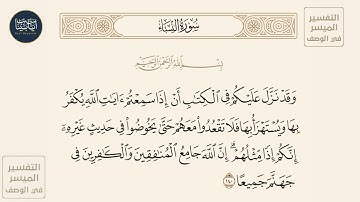 التفسير
الميسر
في الوصف
سُورَةُ النِّسَاءِ
بِسْمِ اللَّهِ الرَّحْمَٰنِ الرَّحِيمِ
وَقَدْ نَزَّلَ عَلَيْكُمْ فِي الْكِتَابِ أَنْ إِذَا سَمِعْتُمْ ءَايَاتِ اللَّهِ يُكْفَرُ
بِهَا وَيُسْتَهْزَأُ بِهَا فَلَا تَقْعُدُوا مَعَهُمْ حَتَّىٰ يَخُوضُوا فِي حَدِيثٍ غَيْرِهِ
إِنَّكُمْ إِذًا مِّثْلُهُمْ ۗ إِنَّ اللَّهَ جَامِعُ الْمُنَافِقِينَ وَالْكَافِرِينَ فِي
جَهَنَّمَ جَمِيعًا ١٤٠
التفسير
الميسر
في الوصف